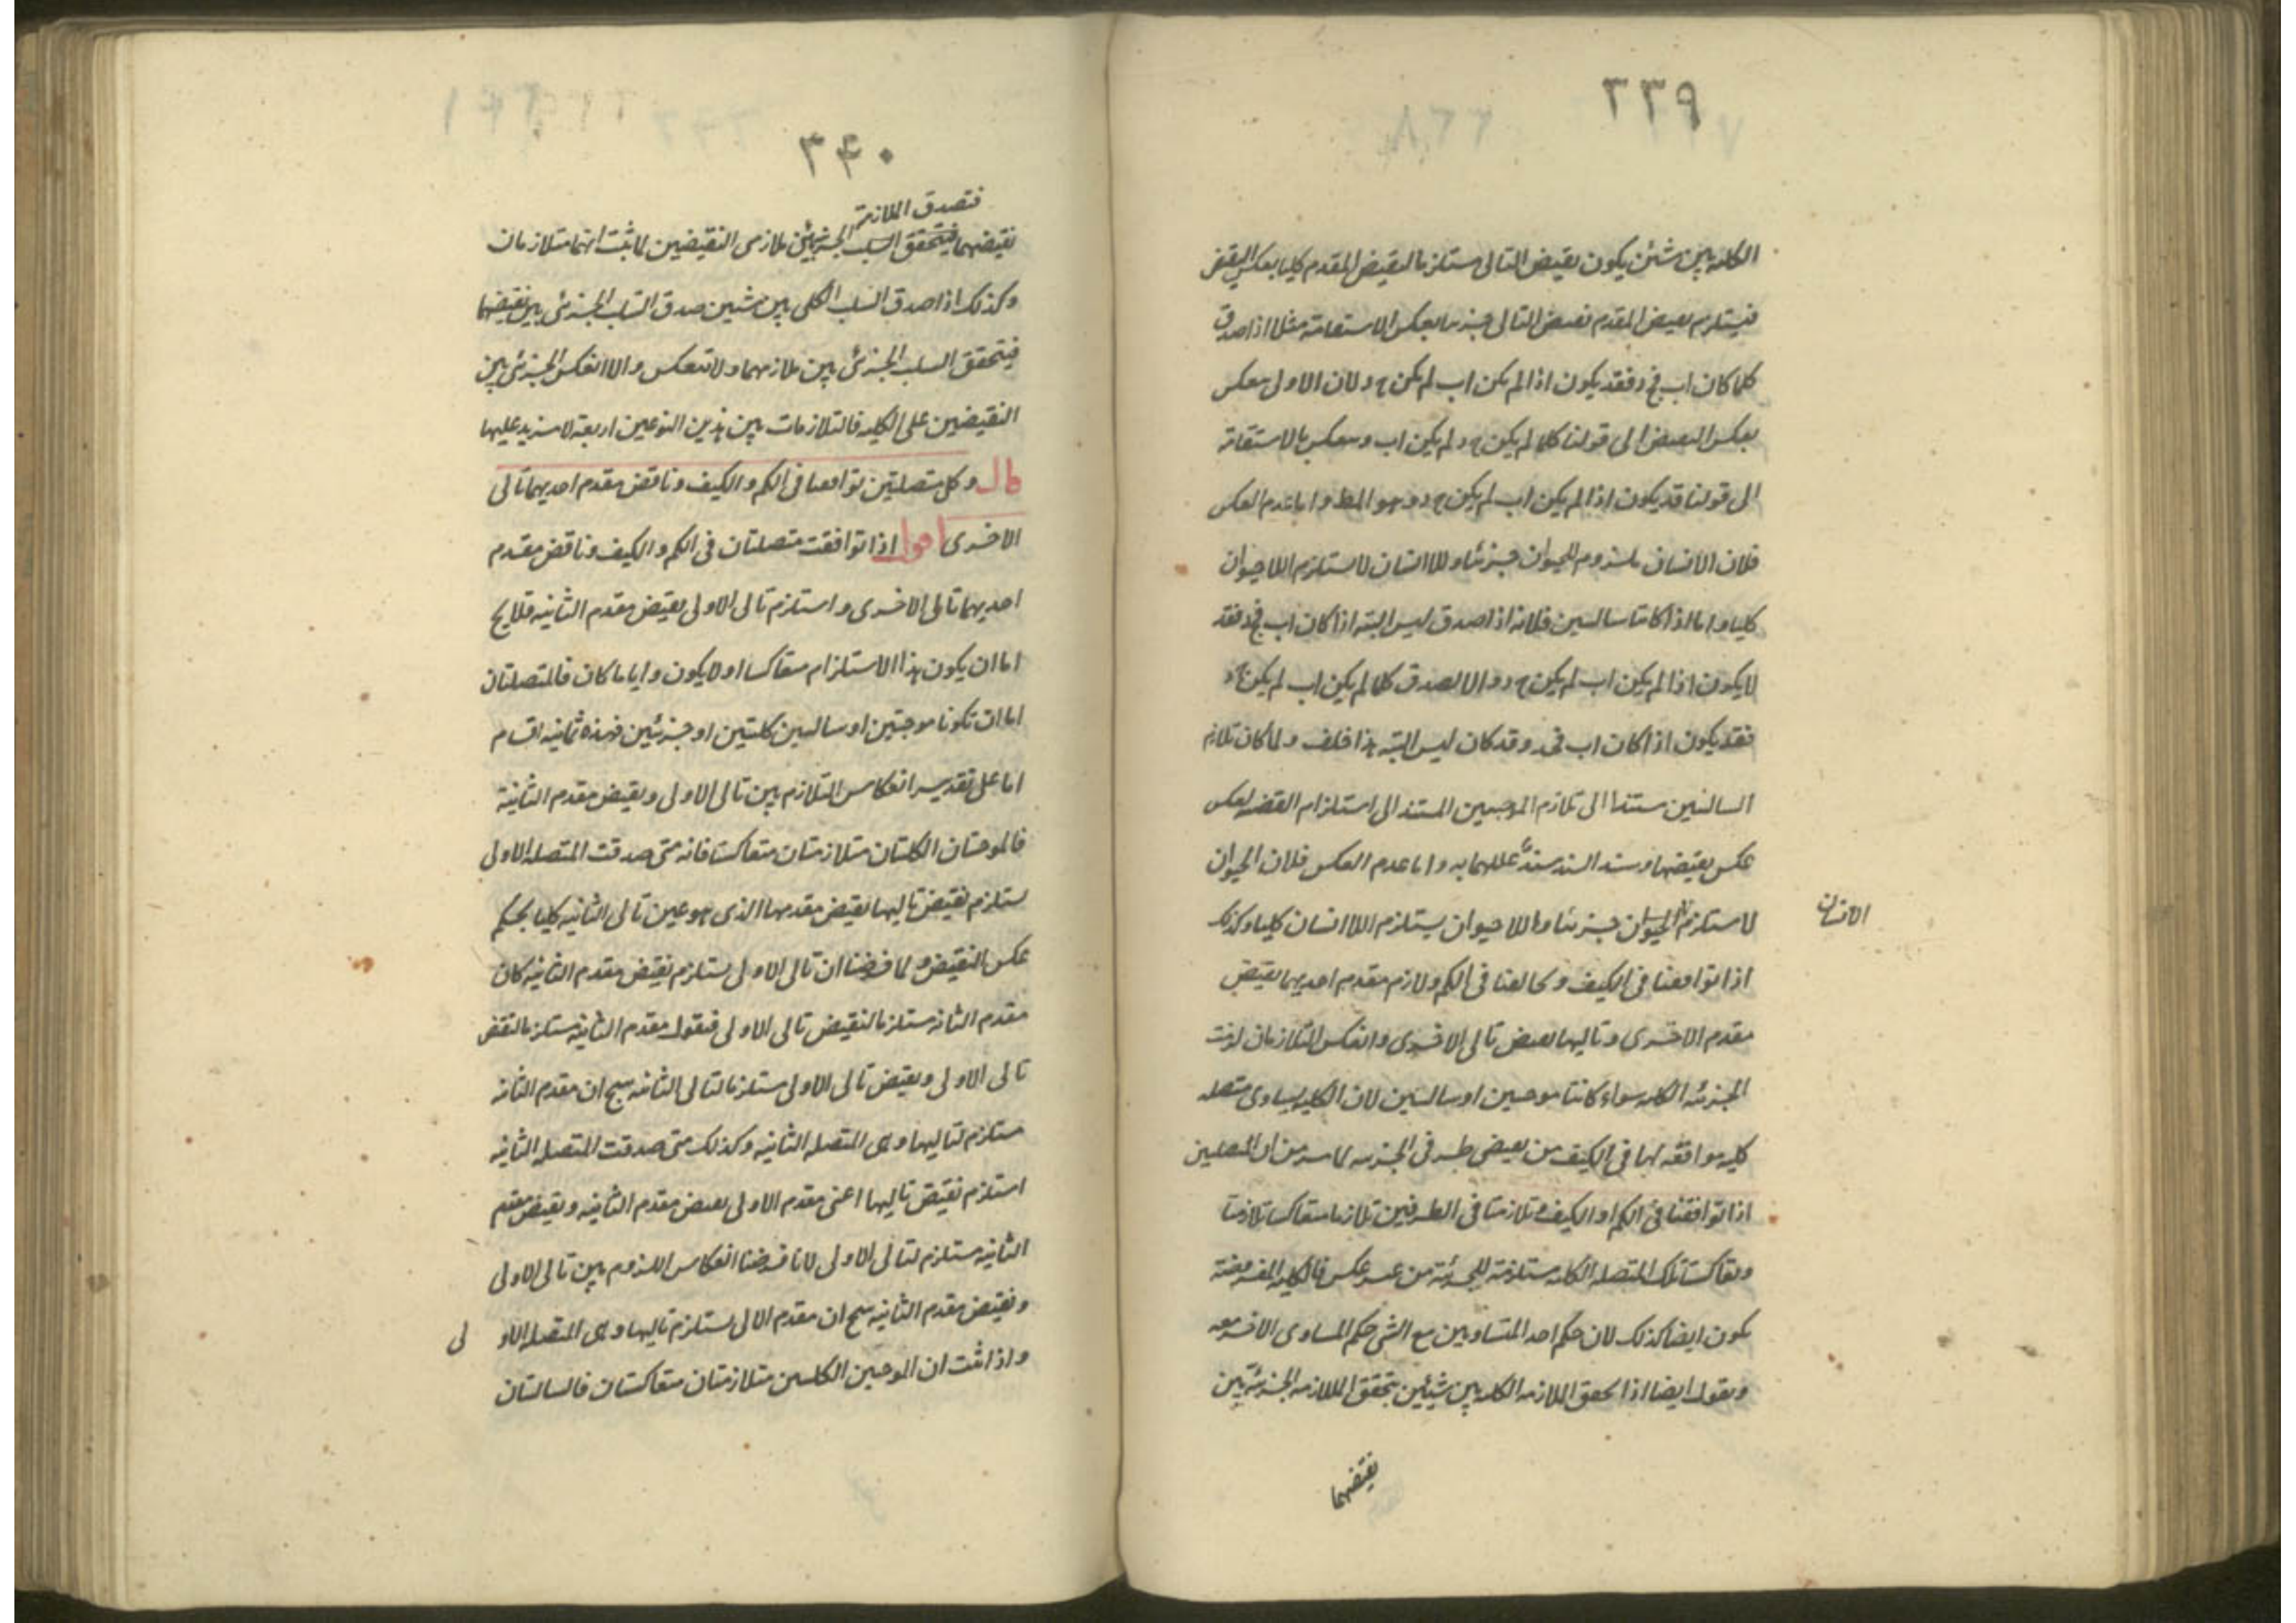 ٣٣٩
الكلية بين شيئين يكون نقيض التالى مستلزما لنقيض المقدم كليا بعكس النقيض
فيستلزم نقيض المقدم نقيض التالى جزئيا بعكس الاستقامة مثلا اذا صدق
كلما كان اب فج د فقد يكون اذا لم يكن اب لم يكن ج د لان الاولى ينعكس
بعكس النقيض الى قولنا كلما لم يكن ج د لم يكن اب وينعكس بالاستقامة
الى قولنا قد يكون اذا لم يكن اب لم يكن ج د وهو المط واما عدم العكس
فلان الانسان ملزوم للحيوان جزئيا واللاانسان لا يستلزم اللاحيوان
كليا واما اذا كانتا سالبتين فلانه اذا صدق ليس البته اذا كان اب فج د فقد
لا يكون اذا لم يكن اب لم يكن ج د والا لصدق كلما لم يكن اب لم يكن ج د
فقد يكون اذا كان اب فج د وقد كان ليس البته هذا خلف ولما كان تلازم
السالبتين مستندا الى تلازم الموجبتين المستند الى استلزام القضيه لعكس
عكس نقيضها وسند السند سند عللهما به واما عدم العكس فلان الحيوان
لا يستلزم الحيوان جزئيا واللاحيوان يستلزم اللاانسان كليا وكذلك
الانسان
اذا توافقتا فى الكيف وتخالفتا فى الكم ولازم مقدم احديهما نقيض
مقدم الاخرى وتاليها نقيض تالى الاخرى وانعكس التلازمان لزمت
الجزئية الكلية سواء كانتا موجبتين او سالبتين لان الكلية يساوى متصله
كلية موافقه لها فى الكيف من نقيضى طرفى الجزئيه لما مر من ان المتصلتين
اذا توافقتا فى الكم او الكيف وتلازمتا فى الطرفين تلازما متعاكسا تلازمتا
وتعاكستا تلك المتصله الكليه مستلزمة للجزئية من غير عكس فالكليه المفروضة
يكون ايضا كذلك لان حكم احد المتساويين مع الشى حكم المساوى الاخر معه
ونقول ايضا اذا تحقق الملازمه الكليه بين شيئين يتحقق الملازمه الجزئية بين
نقيضهما
٣٤٠
فتصدق الملازمة
نقيضيهما فيتحقق السلب الجزئى بين ملازمى النقيضين لما ثبت انهما متلازمان
وكذلك اذا صدق السلب الكلى بين شيئين صدق السلب الجزئى بين نقيضهما
فيتحقق السلب الجزئى بين ملازمهما ولا تنعكس والا انعكس الجزئى بين
النقيضين على الكليه فالتلازمات بين هذين النوعين اربعة لا مزيد عليها
قال وكل متصلتين توافقتا فى الكم والكيف وناقض مقدم احديهما تالى
الاخرى اقول اذا توافقت متصلتان فى الكم والكيف وناقض مقدم
احديهما تالى الاخرى واستلزم تالى الاولى نقيض مقدم الثانيه فلا يخ
اما ان يكون هذا الاستلزام متعاكسا او لا يكون واياما كان فالمتصلتان
اما ان تكونا موجبتين او سالبتين كليتين او جزئيتين فهذه ثمانيه اقسام
اما على تقدير انعكاس التلازم بين تالى الاولى ونقيض مقدم الثانية
فالموجبتان الكليتان متلازمتان متعاكستا فانه متى صدقت المتصله الاولى
يستلزم نقيض تاليها نقيض مقدمها الذى هو عين تالى الثانيه كليا بحكم
عكس النقيض ولما فرضنا ان تالى الاولى يستلزم نقيض مقدم الثانيه كان
مقدم الثانيه مستلزما لنقيض تالى الاولى فنقول مقدم الثانيه مستلزما لنقيض
تالى الاولى ونقيض تالى الاولى مستلزما لتالى الثانيه ينتج ان مقدم الثانيه
مستلزم لتاليها وهى المتصله الثانيه وكذلك متى صدقت المتصله الثانيه
استلزم نقيض تاليها اعنى مقدم الاولى نقيض مقدم الثانيه ونقيض مقدم
الثانيه مستلزم لتالى الاولى لانا فرضنا انعكاس اللزوم بين تالى الاولى
ونقيض مقدم الثانيه ينتج ان مقدم الالى مستلزم تاليها وهى المتصله الاو لى
واذا ثبت ان الموجبتين الكليتين متلازمتان متعاكستان فالسالبتان